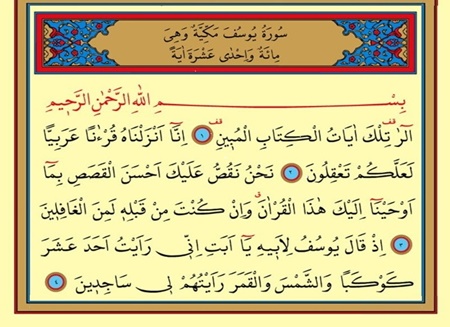 سُورَةُ يُوسُفَ مَكِّيَّةٌ وَهِيَ
مِائَةٌ وَاِحْدٰى عَشْرَةَ اٰيَةً
بِسْمِ اللّٰهِ الرَّحْمٰنِ الرَّح۪يمِ
الٓرٰ۠ تِلْكَ اٰيَاتُ الْكِتَابِ الْمُب۪ينِ۠ ﴿١﴾ اِنَّٓا اَنْزَلْنَاهُ قُرْءٰنًا عَرَبِيًّا
لَعَلَّكُمْ تَعْقِلُونَ ﴿٢﴾ نَحْنُ نَقُصُّ عَلَيْكَ اَحْسَنَ الْقَصَصِ بِمَٓا
اَوْحَيْنَٓا اِلَيْكَ هٰذَا الْقُرْاٰنَۗ وَاِنْ كُنْتَ مِنْ قَبْلِه۪ لَمِنَ الْغَافِل۪ينَ
﴿٣﴾ اِذْ قَالَ يُوسُفُ لِاَب۪يهِ يَٓا اَبَتِ اِنّ۪ي رَاَيْتُ اَحَدَ عَشَرَ
كَوْكَبًا وَالشَّمْسَ وَالْقَمَرَ رَاَيْتُهُمْ ل۪ي سَاجِد۪ينَ ﴿٤﴾